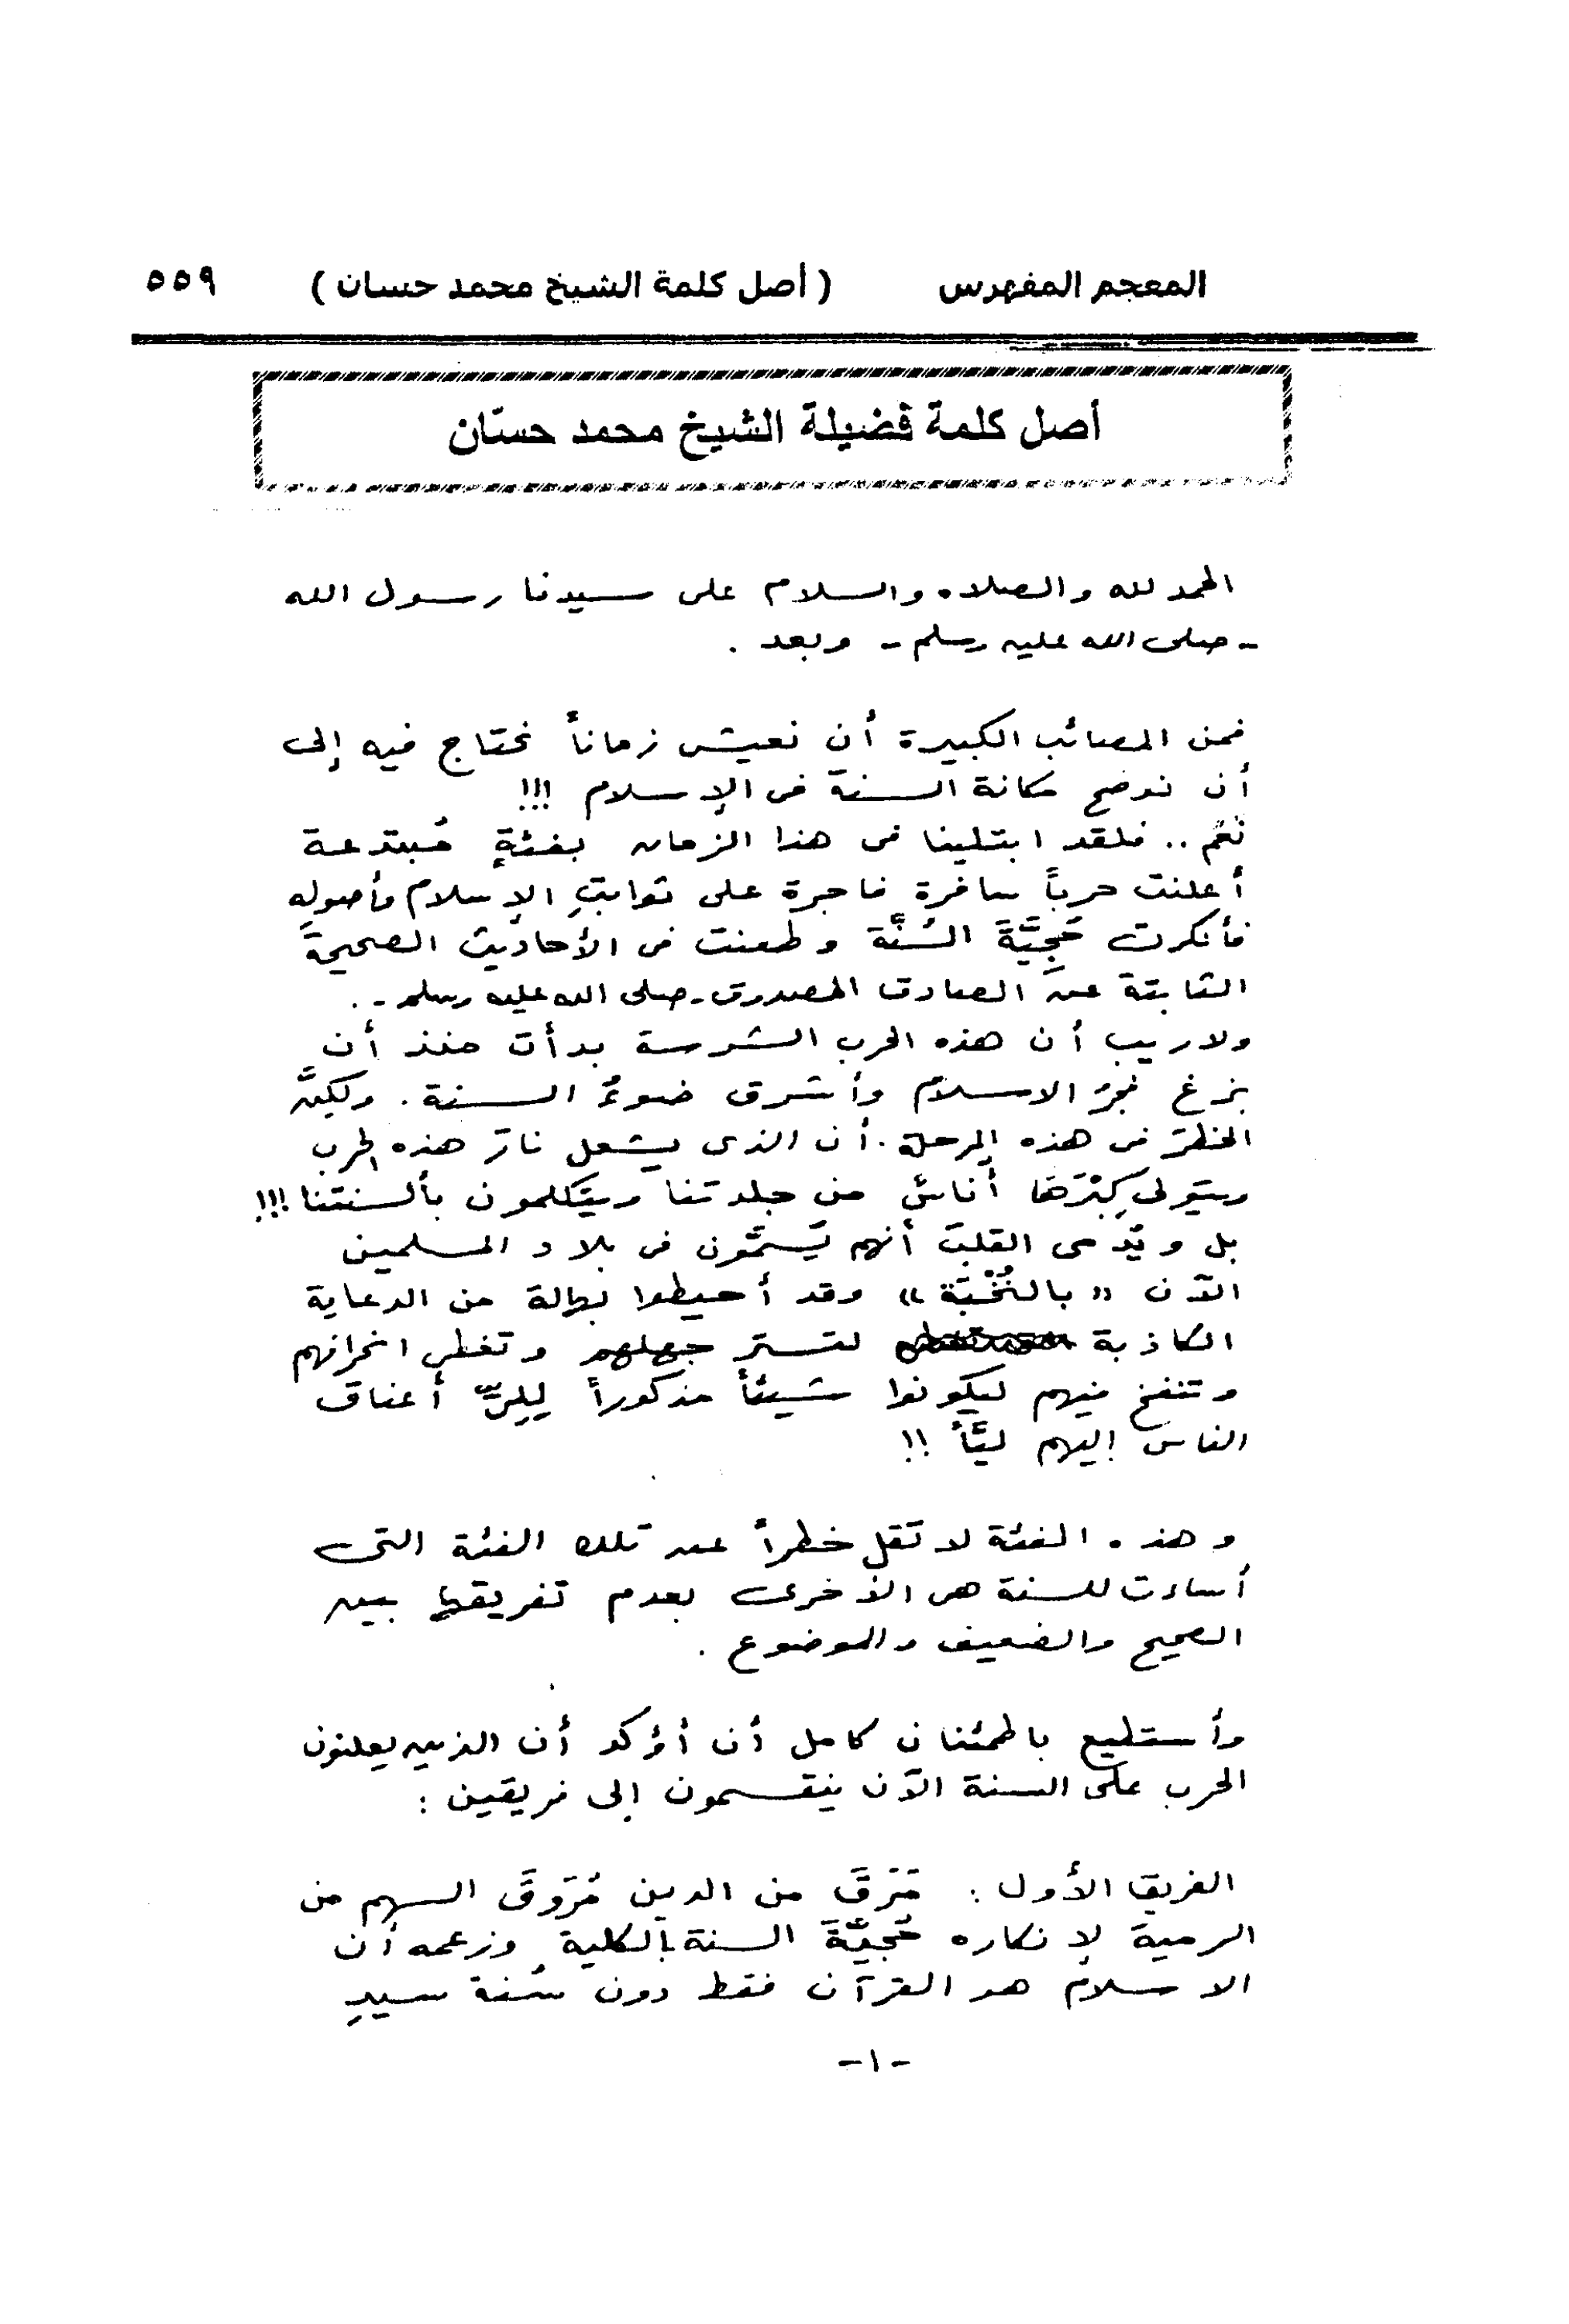 المعجم المفهرس ( أصل كلمة الشيخ محمد حسان ) ٥٥٩
أصل كلمة فضيلة الشيخ محمد حسّان
الحمد لله والصلاه والسلام على سيدنا رسول الله
- صلى الله عليه وسلم - وبعد .
فمن المصائب الكبيرة أن نعيش زماناً نحتاج فيه إلى
أن نوضح مكانة السنة فى الإسلام !!!
نَعَم .. فلقد ابتلينا فى هذا الزمان بفئةٍ مُبتدعة
أعلنت حرباً سافرة فاجرة على ثوابتِ الإسلام وأصولِهِ
فأنكرت حُجِيَّةَ السُنَّة وطعنت فى الأحاديث الصحيحةَ
الثابتة عن الصادق المصدوق - صلى الله عليه وسلم - .
ولا ريب أن هذه الحرب الشرسة بدأت منذ أن
بزغ فجرُ الاسلام وأشرق ضوءُ السنة . ولكِنَّ
الخطرَ فى هذه المرحلة . أن الذى يشعل نارَ هذه الحرب
ويتولى كِبْرَهَا أناسٌ من جلدتنا ويتكلمون بألسنتنا !!!
بل ويُدمى القلبَ أنهم يُسَمَّون فى بلاد المسلمين
الآن « بالنُخْبَة » وقد أحيطوا بهالة من الدعاية
الكاذبة لتستر جهلهم وتغطى انحرافهم
وتنفخ فيهم ليكونوا شيئاً مذكوراً لِلِىِّ أعناق
الناس إليهم ليَّاً !!
وهذه الفئة لا تقل خطراً عن تلك الفئة التى
أساءت للسنة هى الأخرى بعدم تفريقها بين
الصحيح والضعيف والموضوع .
وأستطيع باطمئنان كامل أن أؤكد أن الذين يعلنون
الحرب على السنة الآن ينقسمون إلى فريقين :
الفريق الأول : مَرَقَ من الدين مُرَوقَ السهم من
الرمية لإنكاره حُجيَّةَ السنة بالكلية وزعمه أن
الاسلام هو القرآن فقط دون سُنة سيدِ
- ١ -